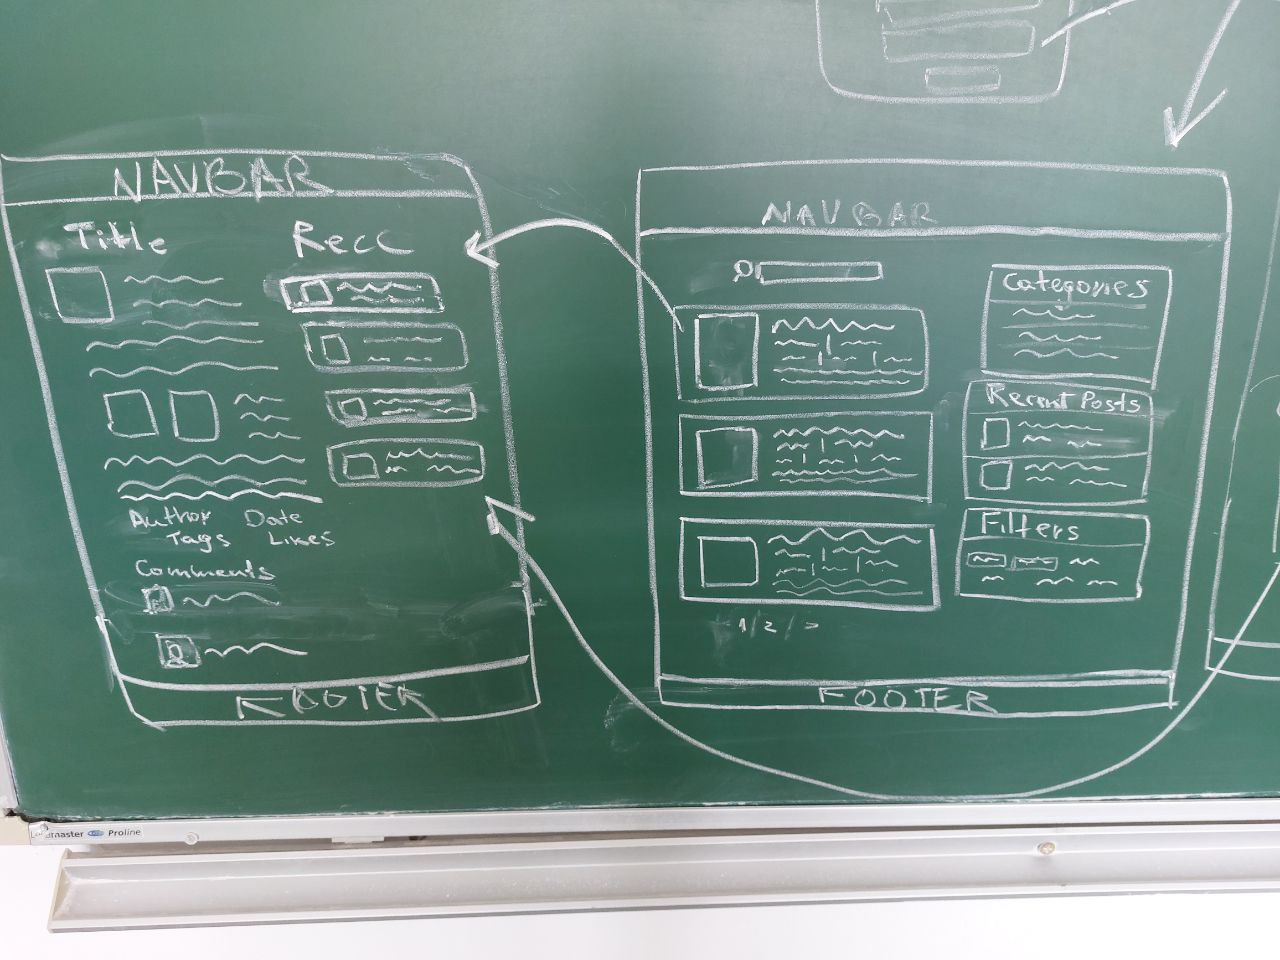 NAVBAR
Title
Recc
Author Date
Tags Likes
Comments
FOOTER
NAVBAR
Categories
Recent Posts
Filters
1/2/>
FOOTER
Proline